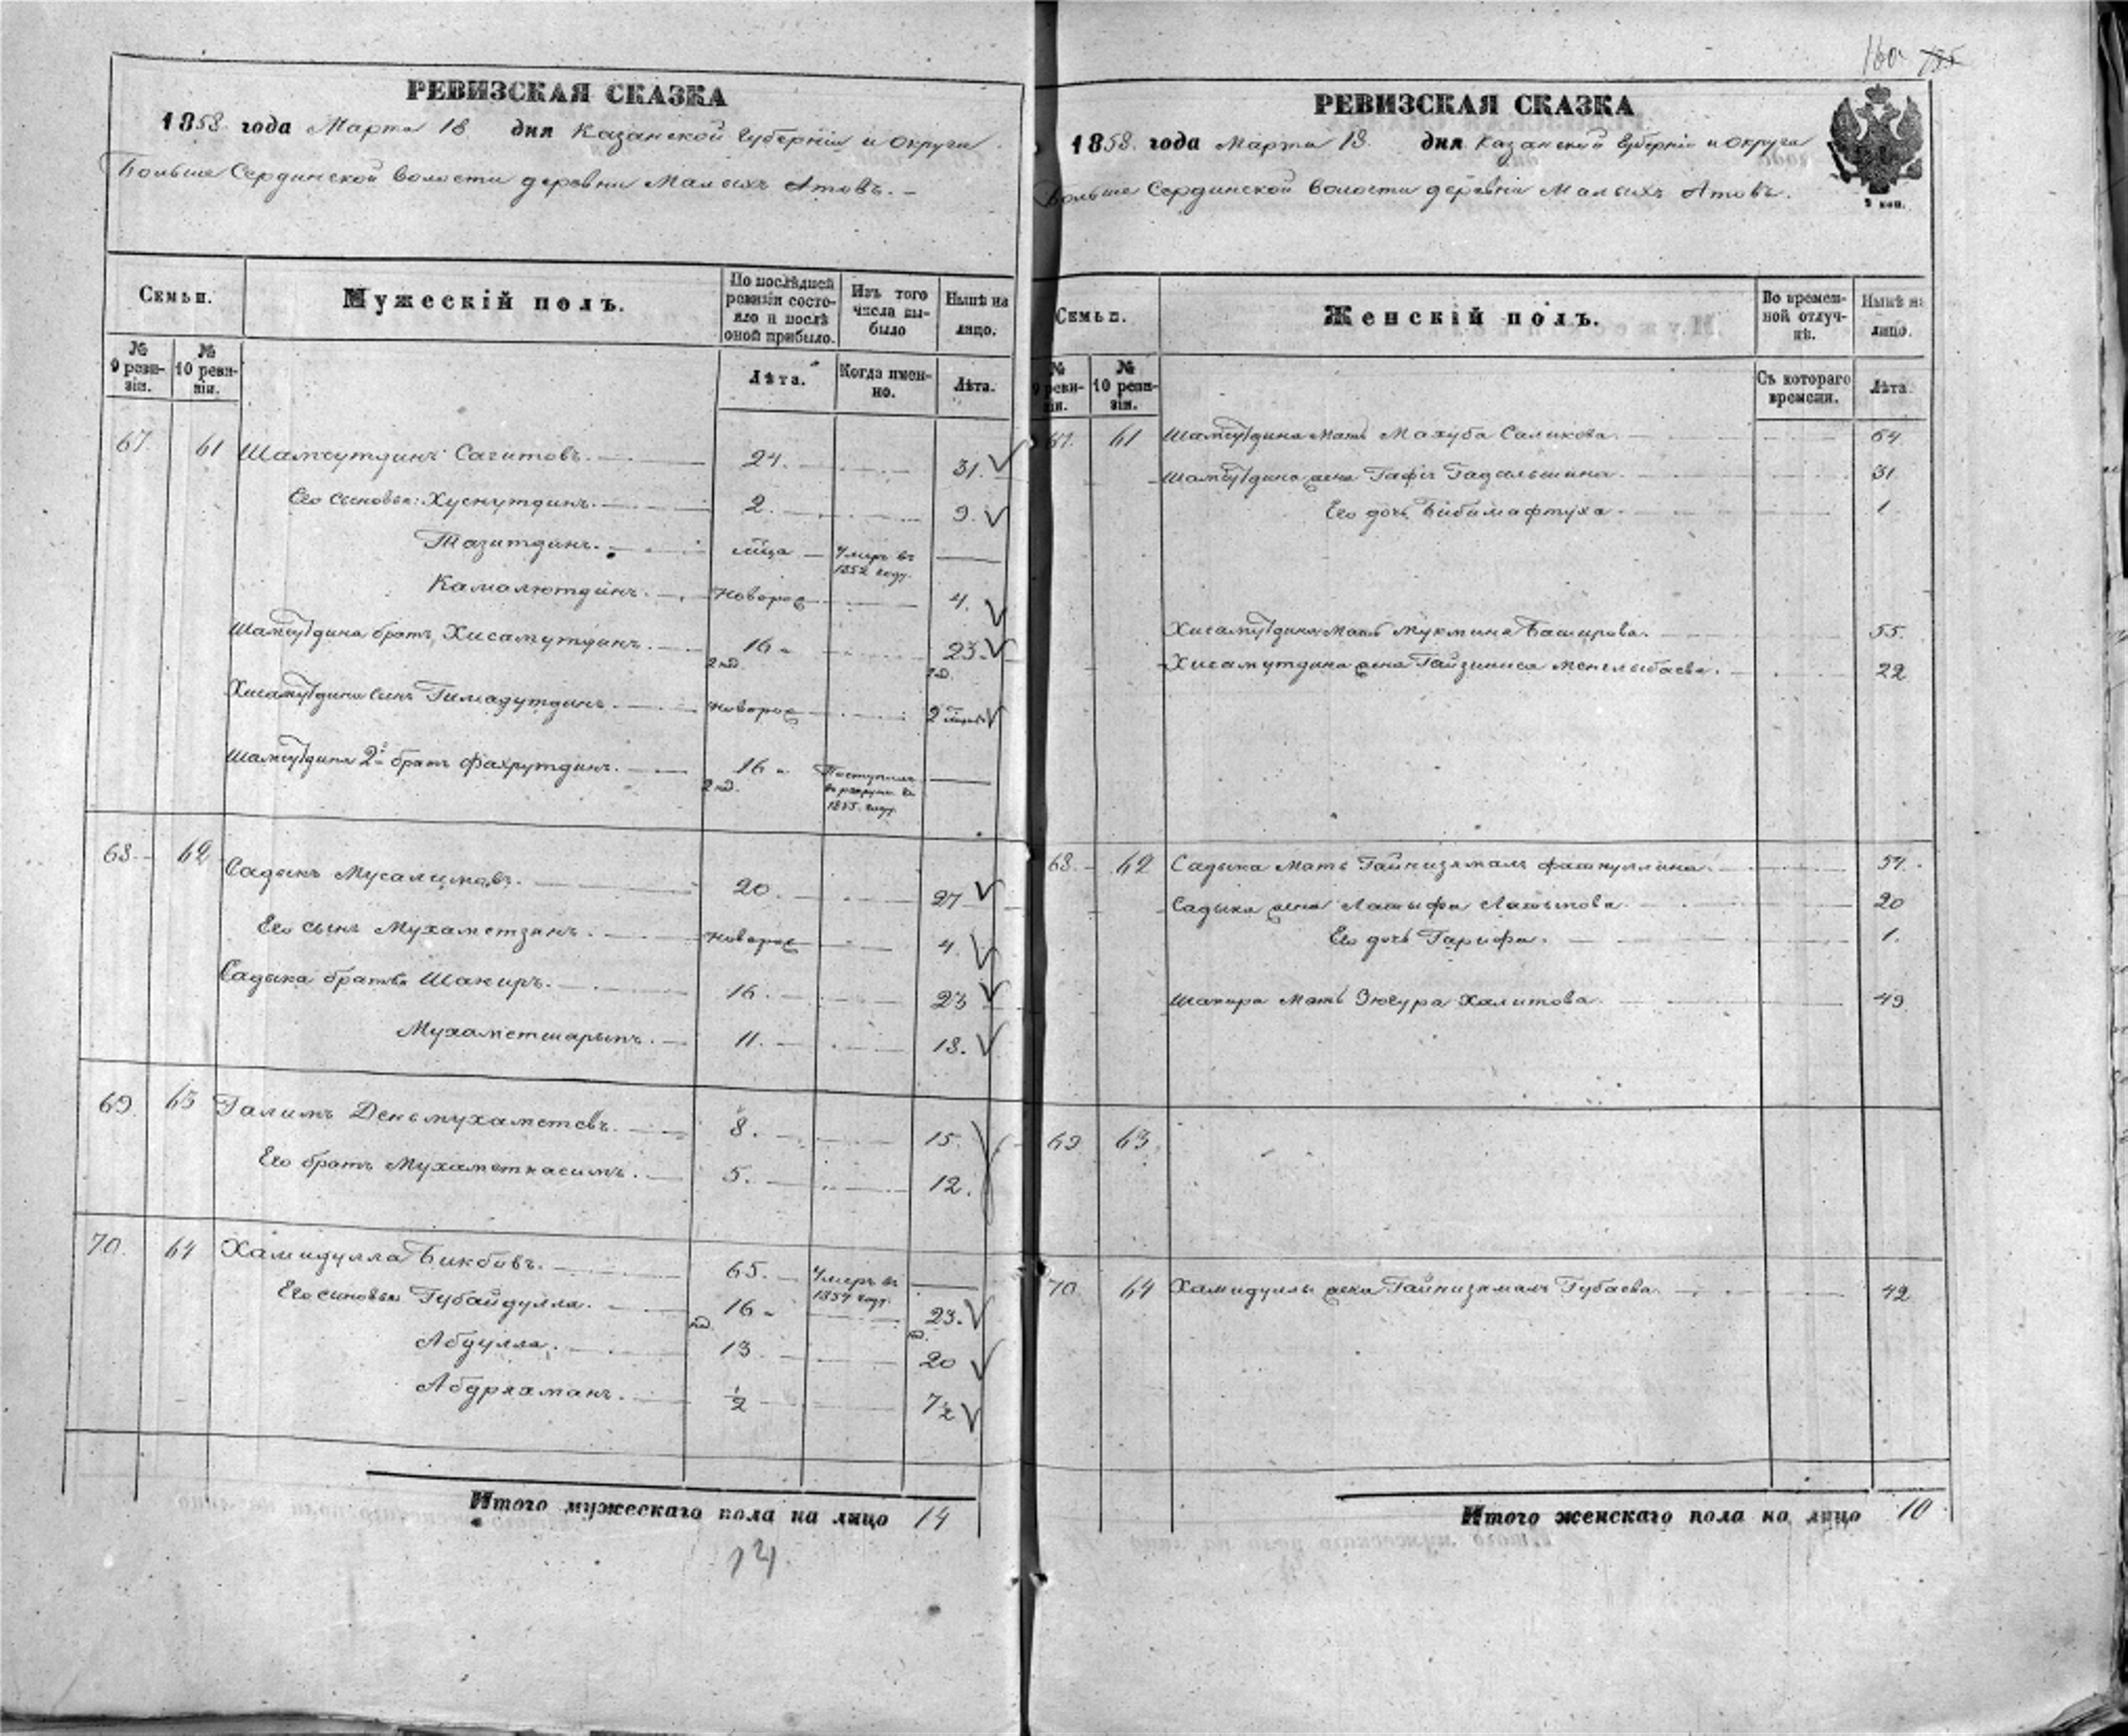 РЕВИЗСКАЯ СКАЗКА
1858 года Марта 18 дня Казанской Губерніи и округа
Больше Сердинской волости деревни Малыхъ Атовъ. –
Семьи.
Мужескій полъ.
По послѣдней ревизіи состояло и послѣ оной прибыло.
Изъ того числа выбыло
Нынѣ на лицо.
№ 9 ревизіи.
№ 10 ревизіи.
Лѣта.
Когда именно.
Лѣта.
67. 61 Шамсутдинъ Сагитовъ. 24. 31.
Его сыновья: Хуснутдинъ. 2. 9.
Тазитдинъ. Умеръ въ 1852 году.
Камалютдинъ. новорож 4.
Шамсутдина братъ, Хисамутдинъ. 16 23.
Хисамутдина сынъ Гимадутдинъ. новорож 2
Шамсутдина 2й братъ Фахрутдинъ. 16 Поступилъ въ рекруты въ 1855 году.
68. 62 Садыкъ Мусалимовъ. 20 27
Его сынъ Мухаметзянъ. новорож 4.
Садыка братья Шакиръ. 16. 23
Мухаметшарыпъ. 11. 18.
69. 63 Галимъ Денмухаметевъ. 8. 15.
Его братъ Мухаметкасимъ. 5. 12.
70. 64 Хамидулла Бикбовъ. 65. Умеръ въ 1857 году.
Его сыновья Губайдулла. 16 23.
Абдулла. 13 20
Абдрахманъ. ½ 7½
Итого мужескаго пола на лицо 14
14
160 155
РЕВИЗСКАЯ СКАЗКА
1858. года Марта 18. дня Казанской Губерніи и округа
Больше Сердинской волости деревни Малыхъ Атовъ.
Семьи.
Женскій полъ.
Во временной отлучкѣ.
Нынѣ на лицо.
№ 9 ревизіи.
№ 10 ревизіи.
Съ котораго времени.
Лѣта.
67. 61 Шамсутдина мать Махуба Саликова. 54.
Шамсутдина жена Гафія Гадельшина. 31
Его дочь Бибимафтуха. 1
Хисамутдина мать Мукмина Баширова. 55.
Хисамутдина жена Гайзиниса Менглыбаева. 22
68. 62 Садыка мать Гайнизямалъ Фаткуллина. 57.
Садыка жена Латыфа Латыпова. 20
Его дочь Гарифа. 1.
Шакира мать Зюгура Халитова. 49
69 63
70. 64 Хамидуллы жена Гайнизямалъ Губаева. 42
Итого женскаго пола на лицо 10